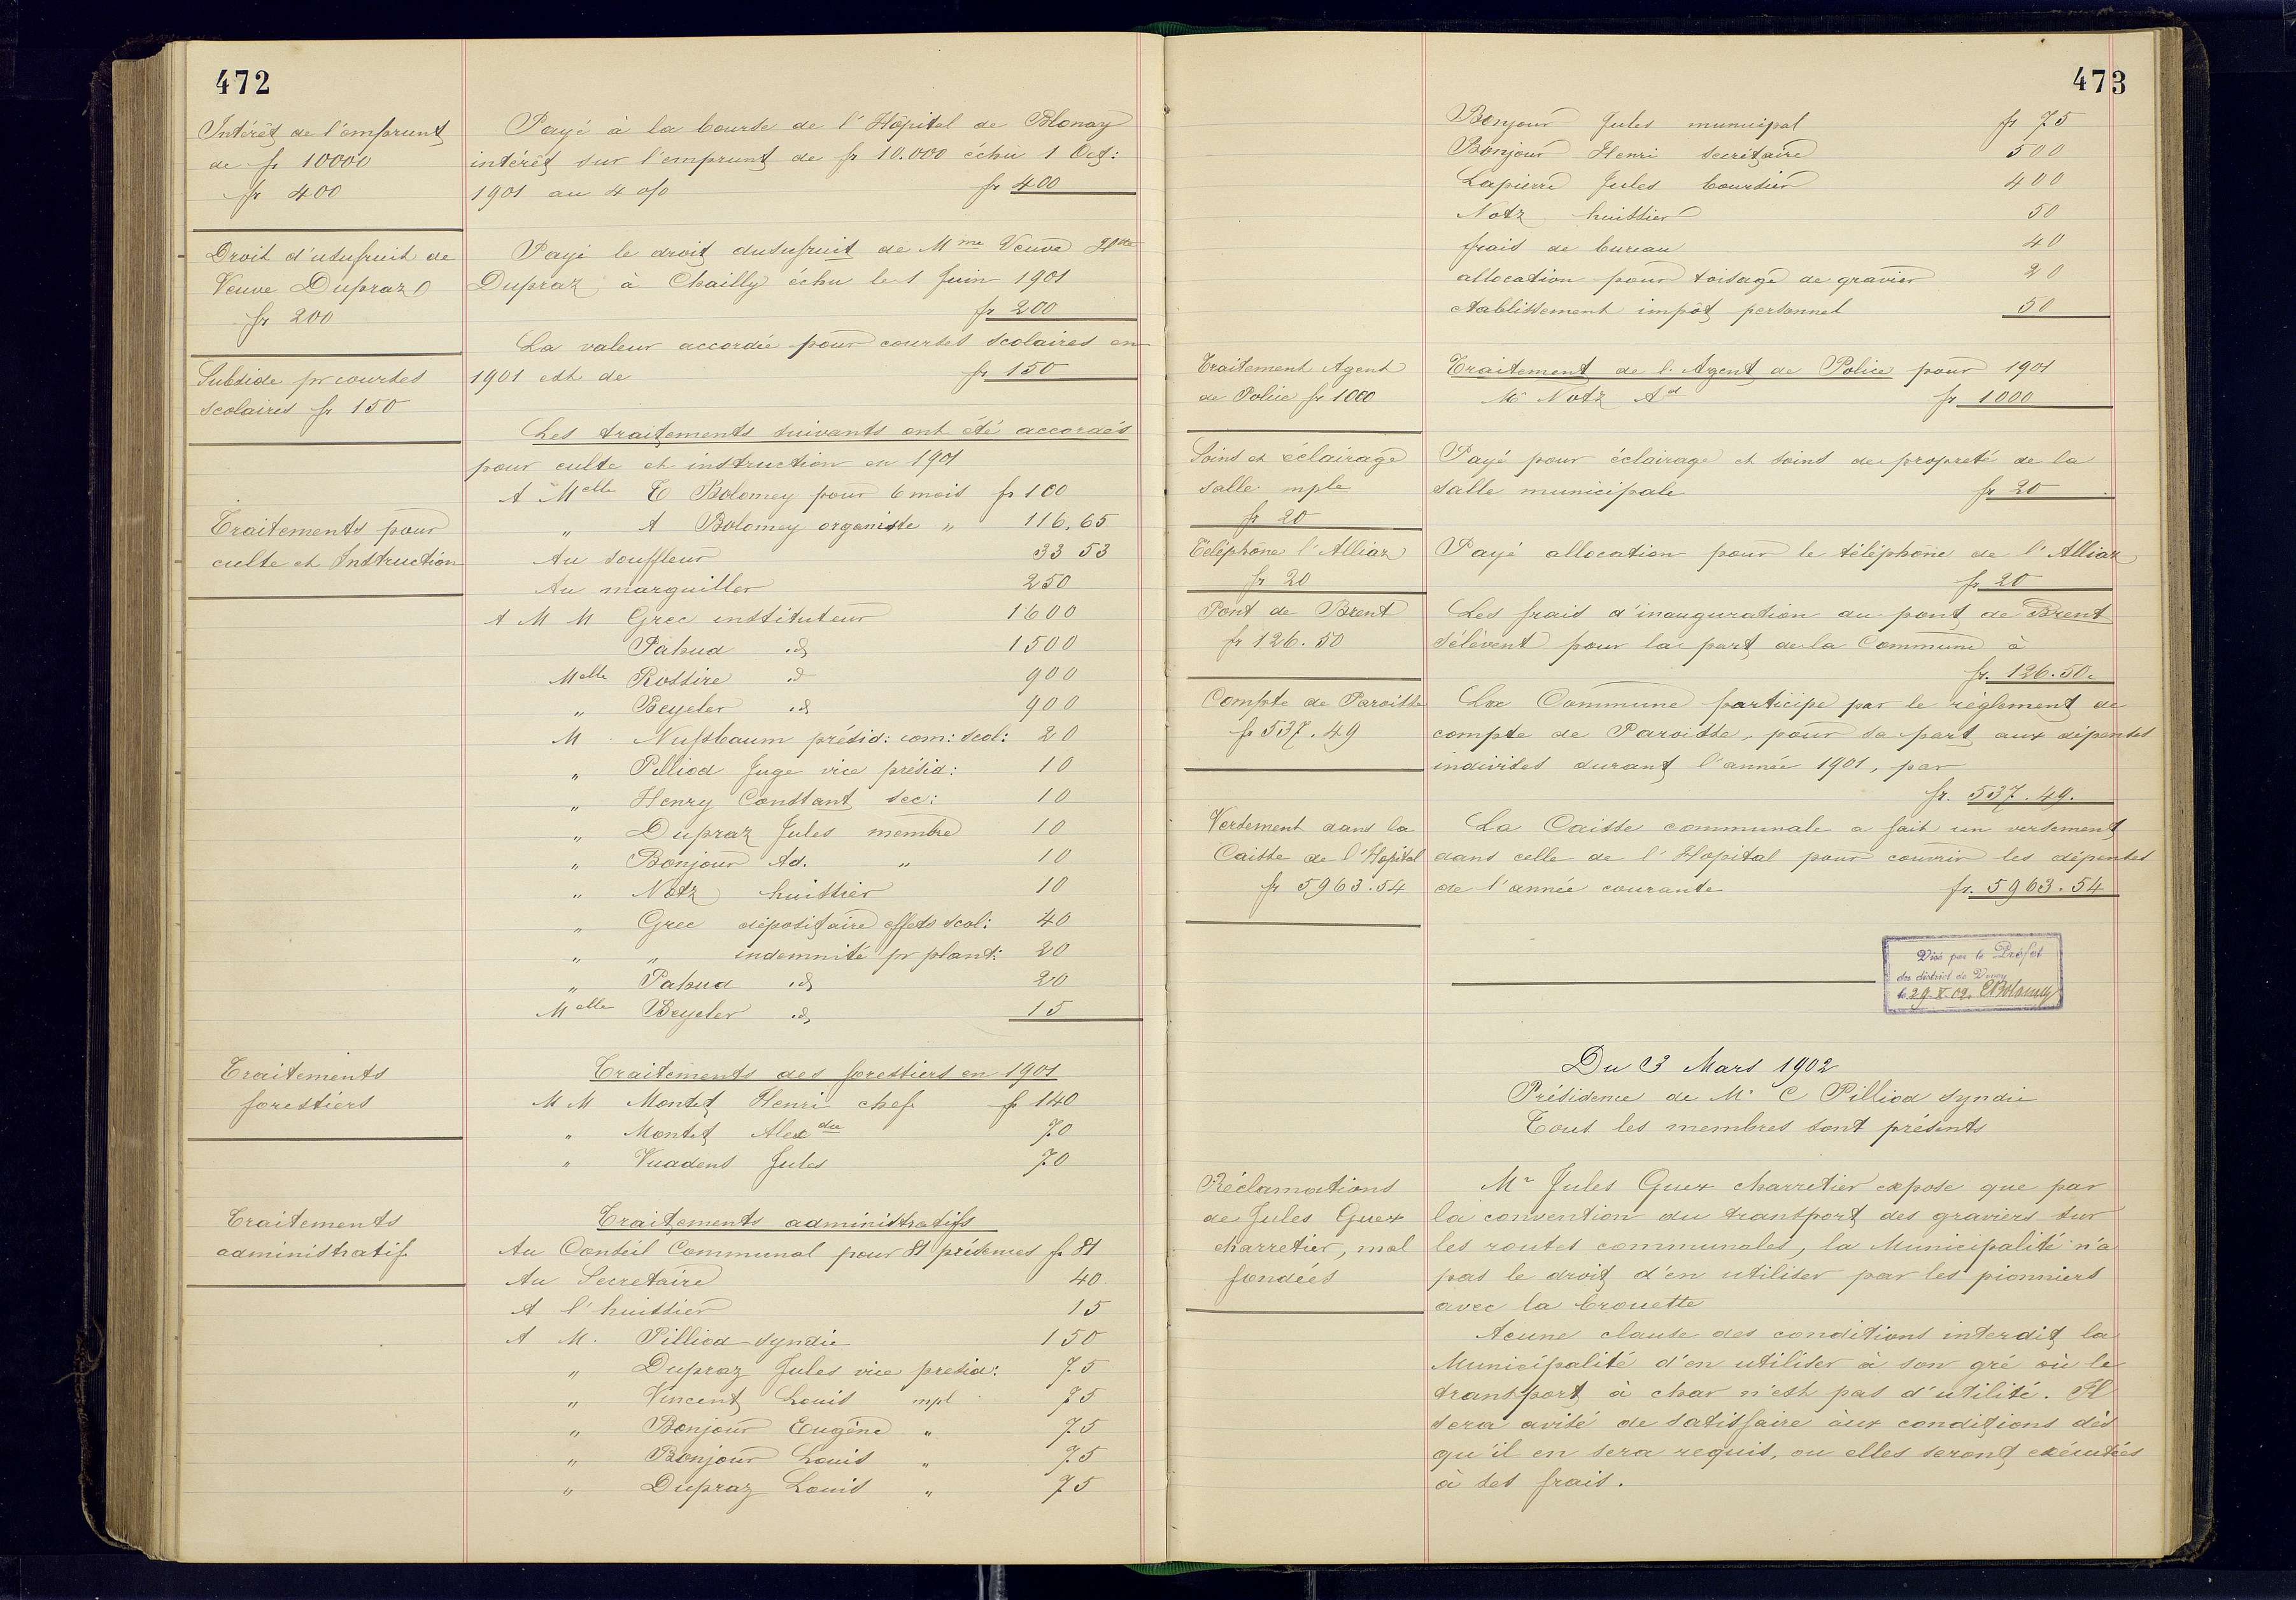 472
Intérêt de l'emprunt
de fr 10000
fr 400
Payé à la bourse de l'Hôpital de Blonay
intérêt sur l'emprunt de fr 10.000 échu 1 Oct:
1901 au 4 o/o fr 400
Droit d'usufruit de
Veuve Dupraz
fr 200
Payé le droit dusufruit de Mme Veuve
Dupraz à Chailly échu le 1 Juin 1901
fr 200
Subside pr courses
scolaires fr 150
La valeur accordée pour courses scolaires en
1901 est de fr 150
Les traitements suivants ont été accordés
pour culte et instruction en 1901
Traitements pour
culte et Instruction
A Melle E Bolomey pour 6 mois fr 100
„ A Bolomey organiste „ 116.65
Au souffleur 33 53
Au marguiller 250
A M M Grec instituteur 1600
Pahud id 1500
Melle Rossire id 900
„ Beyeler id 900
M Nussbaum présid: com: scol: 20
„ Pilliod Juge vice présid: 10
„ Henry Constant sec: 10
„ Dupraz Jules membre 10
„ Bonjour Ad. „ 10
„ Notz huissier 10
„ Grec dépositaire effets scol: 40
„ „ indemnité pr plant: 20
„ Pahud id 20
Melle Beyeler id 15
Traitements
forestiers
Traitements des forestiers en 1901
M M Montet Henri chef fr 140
„ Montet Alexdre 70
„ Vuadens Jules 70
Traitements
administratifs
Traitements administratifs
Au Conseil Communal pour 81 présences fr 81
Au Secretaire 40
A l'huissier 15
A M. Pilliod syndic 150
„ Dupraz Jules vice presid: 75
„ Vincent Louis mpl 75
„ Bonjour Eugène „ 75
„ Bonjour Louis „ 75
„ Dupraz Louis „ 75
473
Bonjour Jules municipal fr 75
Bonjour Henri secrétaire 500
Lapierre Jules boursier 400
Notz huissier 50
frais de bureau 40
allocation pour toisage de gravier 20
établissement impôt personnel 50
Traitement Agent
de Police fr 1000
Traitement de l'Agent de Police pour 1901
Mr Notz Ad fr 1000
Soins et éclairage
salle mple
fr 20
Payé pour éclairage et soins de propreté de la
salle municipale fr 20
Téléphone l'Alliaz
fr 20
Payé allocation pour le téléphone de l'Alliaz
fr 20
Pont de Brent
fr 126.50
Les frais d'inauguration du pont de Brent
s'élèvent pour la part de la Commune à
fr. 126.50.
Compte de Paroisse
fr 537.49
La Commune participe par le réglement de
compte de Paroisse, pour sa part aux dépenses
indivises durant l'année 1901, par
fr. 537.49.
Versement dans la
Caisse de l'Hopital
fr 5963.54
La Caisse communale a fait un versement
dans celle de l'Hopital pour couvrir les dépenses
de l'année courante fr. 5963.54
Visé par le Préfet
du district de Vevey
le 29.X.02. EBolomey
Du 3 Mars 1902
Présidence de Mr C Pilliod syndic
Tous les membres sont présents
Réclamations
de Jules Guex
charretier, mal
fondées
Mr Jules Guex charretier expose que par
la convention du transport des graviers sur
les routes communales, la Municipalité n'a
pas le droit d'en utiliser par les pionniers
avec la brouette
Acune clause des conditions interdit la
Municipalité d'en utiliser à son gré où le
transport à char n'est pas d'utilité. Il
sera avisé de satisfaire àux conditions dès
qu'il en sera requis, ou elles seront exécutées
à ses frais.